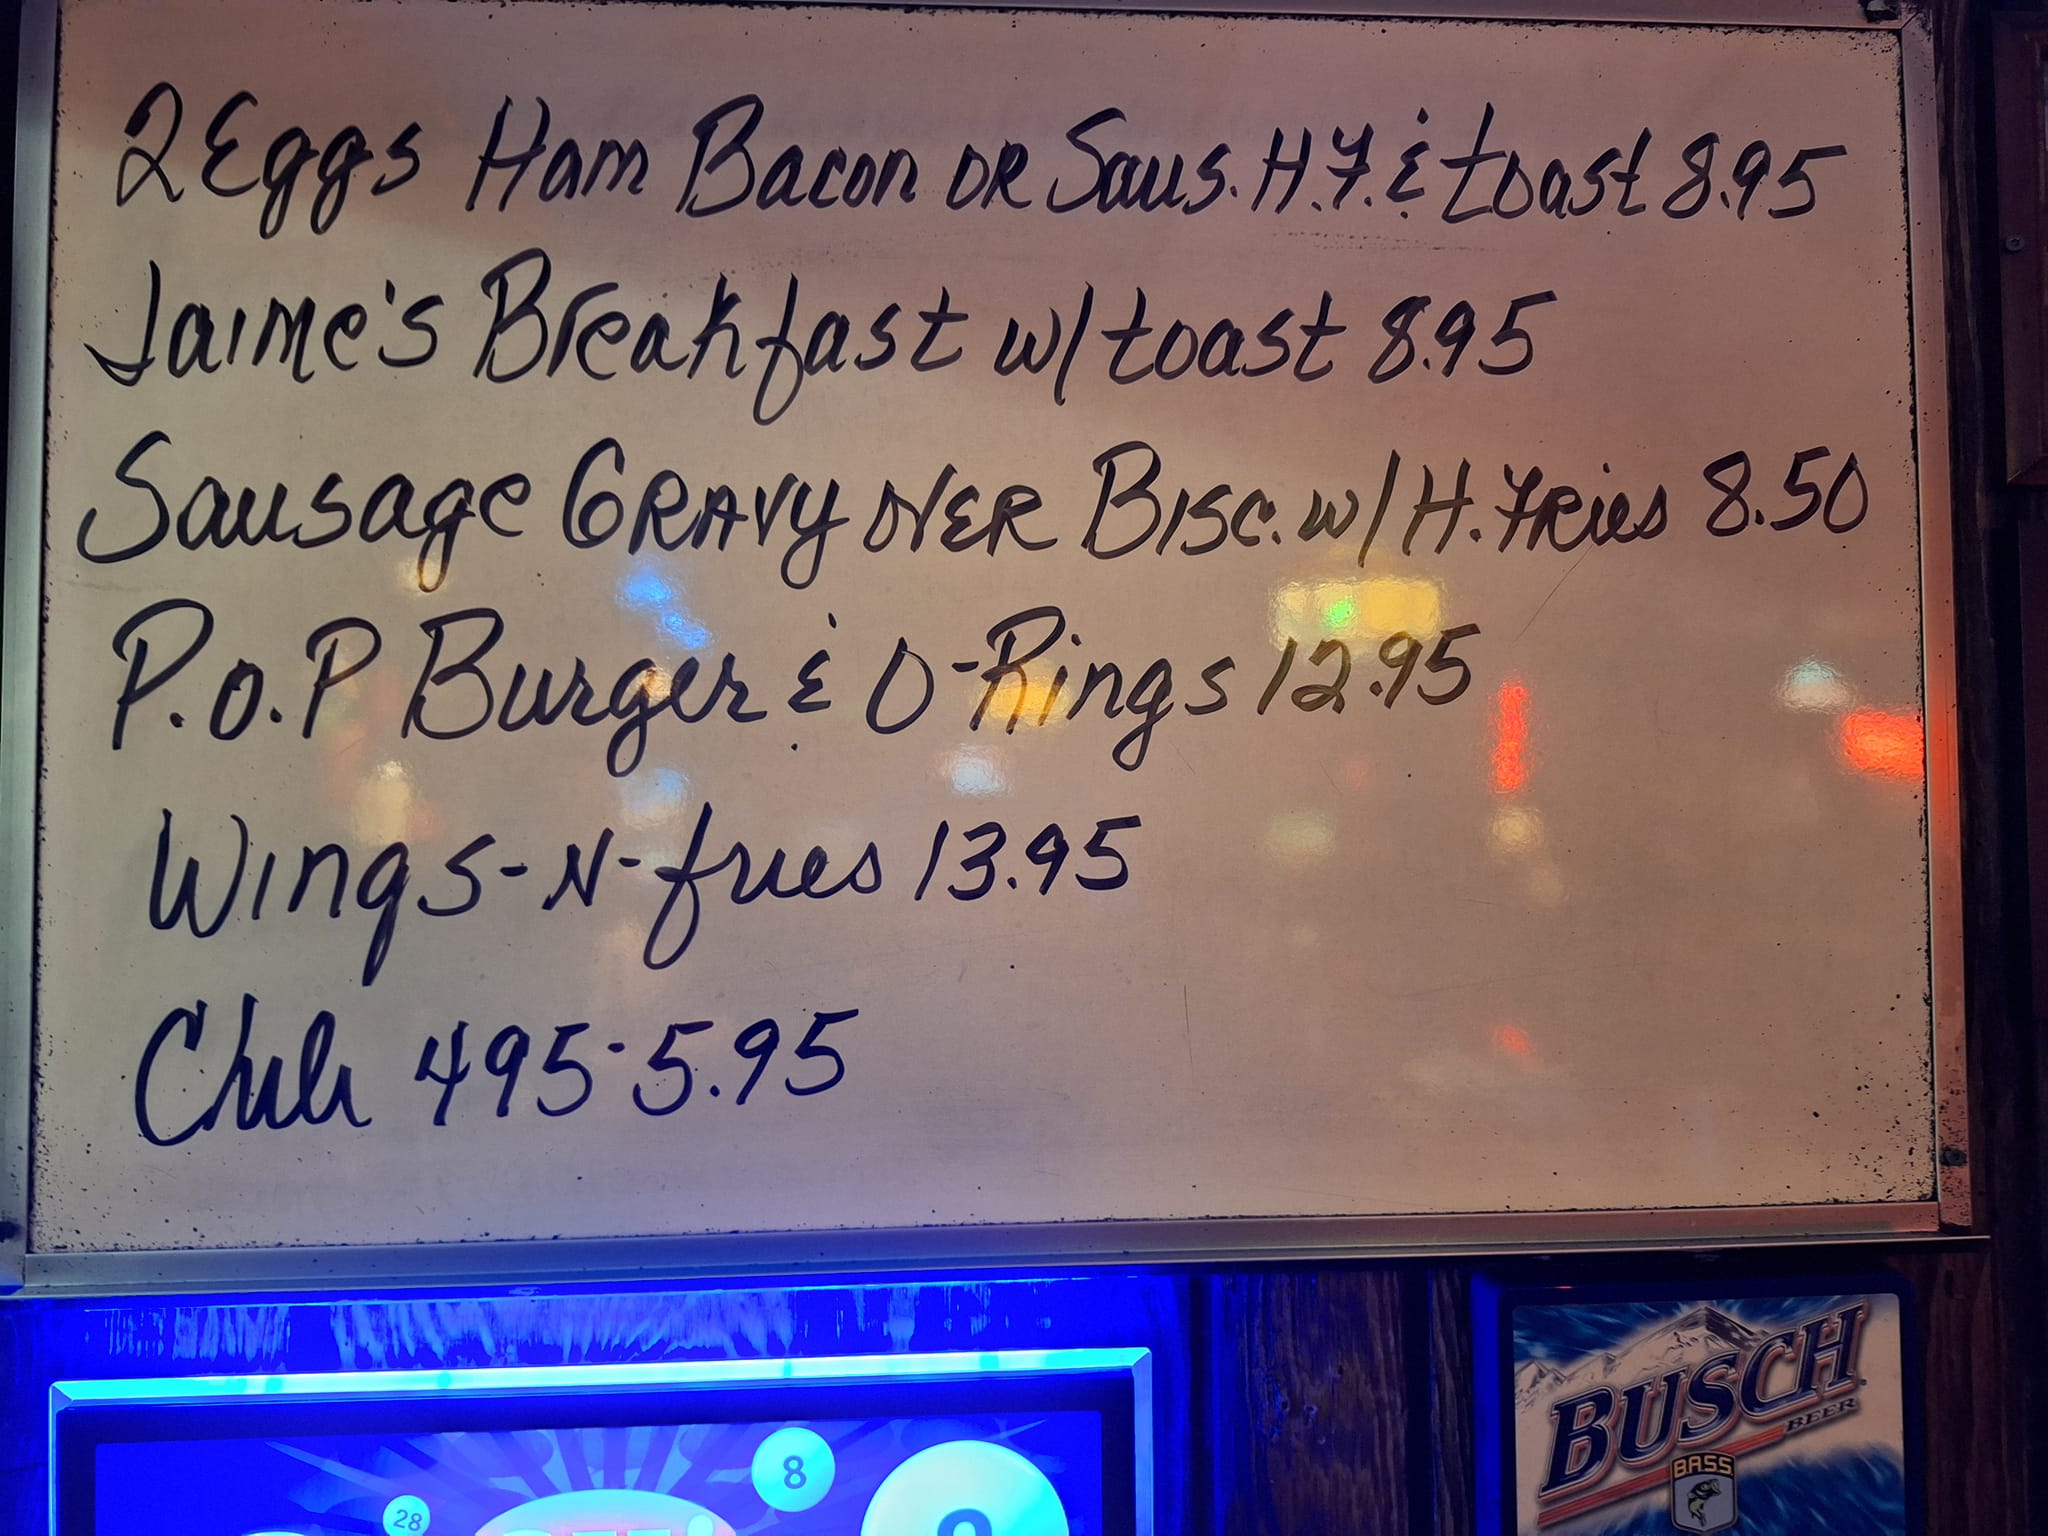 2 Eggs Ham Bacon OR Saus. H.F. & toast 8.95
Jaime's Breakfast w/ toast 8.95
Sausage GRAVY OVER BISC. w/ H. FRies 8.50
P.O.P Burger & O-Rings 12.95
Wings-N-fries 13.95
Chili 495-5.95
8
28
BUSCH
BEER
BASS